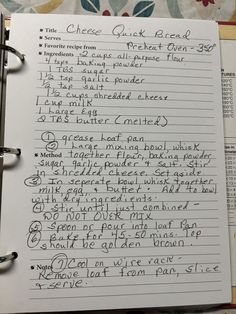 Title Cheese Quick Bread
Serves
Favorite recipe from Preheat Oven - 350°
Ingredients 2 cups all-purpose flour
4 tsps baking powder
1 TBS sugar
1/2 tsp garlic powder
1/2 tsp salt
1 1/2 cups shredded cheese
1 cup milk
1 Large Egg
2 TBS butter (melted)
① grease loaf pan
② Large mixing bowl, whisk
Method together flour, baking powder,
sugar, garlic powder & salt. Stir
in shredded cheese. Set aside
③ In seperate bowl whisk together
milk, egg, & butter. Add to bowl
with dry ingredients.
④ Stir until just combined -
DO NOT OVER MIX
⑤ Spoon or pour into loaf Pan
⑥ Bake for 45-50 mins. Top
should be golden brown.
Notes ⑦ Cool on wire rack -
Remove loaf from pan, slice
& serve.